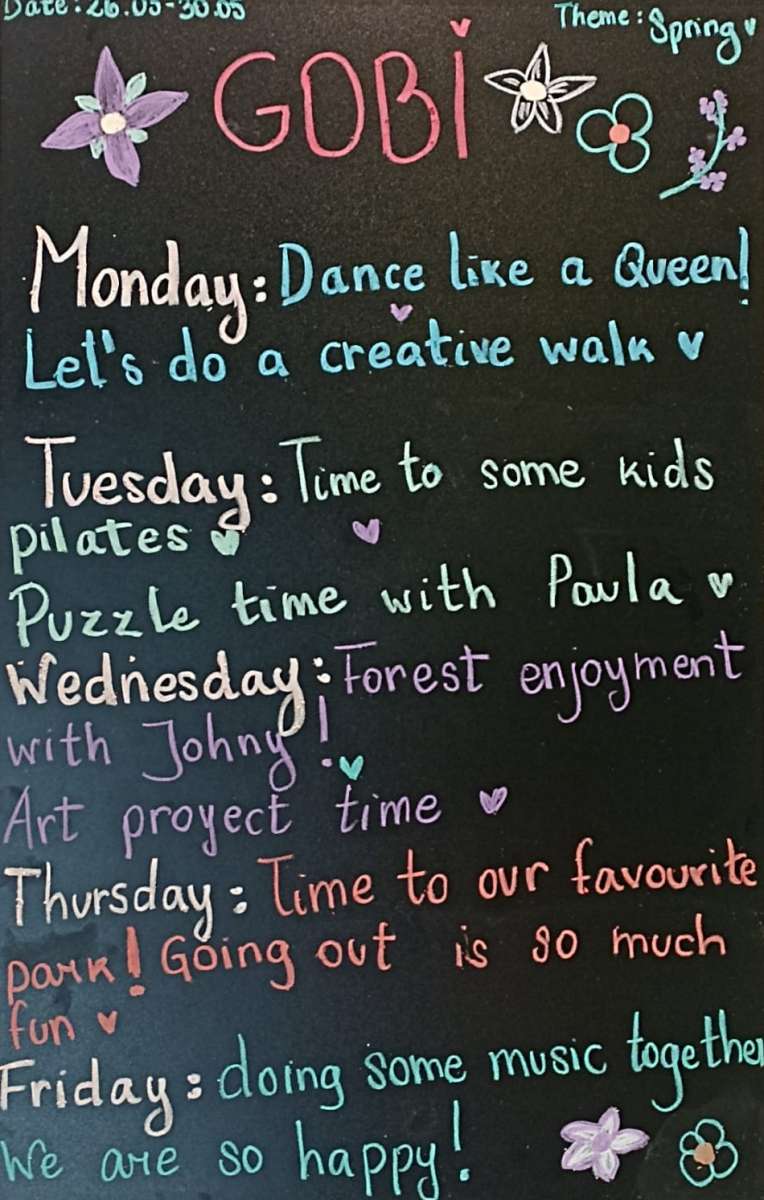 Date: 26.05-30.05
Theme: Spring
GOBi
Monday: Dance like a Queen!
Let's do a creative walk
Tuesday: Time to some kids
pilates
Puzzle time with Paula
Wednesday: Forest enjoyment
with Johny!
Art proyect time
Thursday: Time to our favourite
park! Going out is so much
fun
Friday: doing some music together
We are so happy!